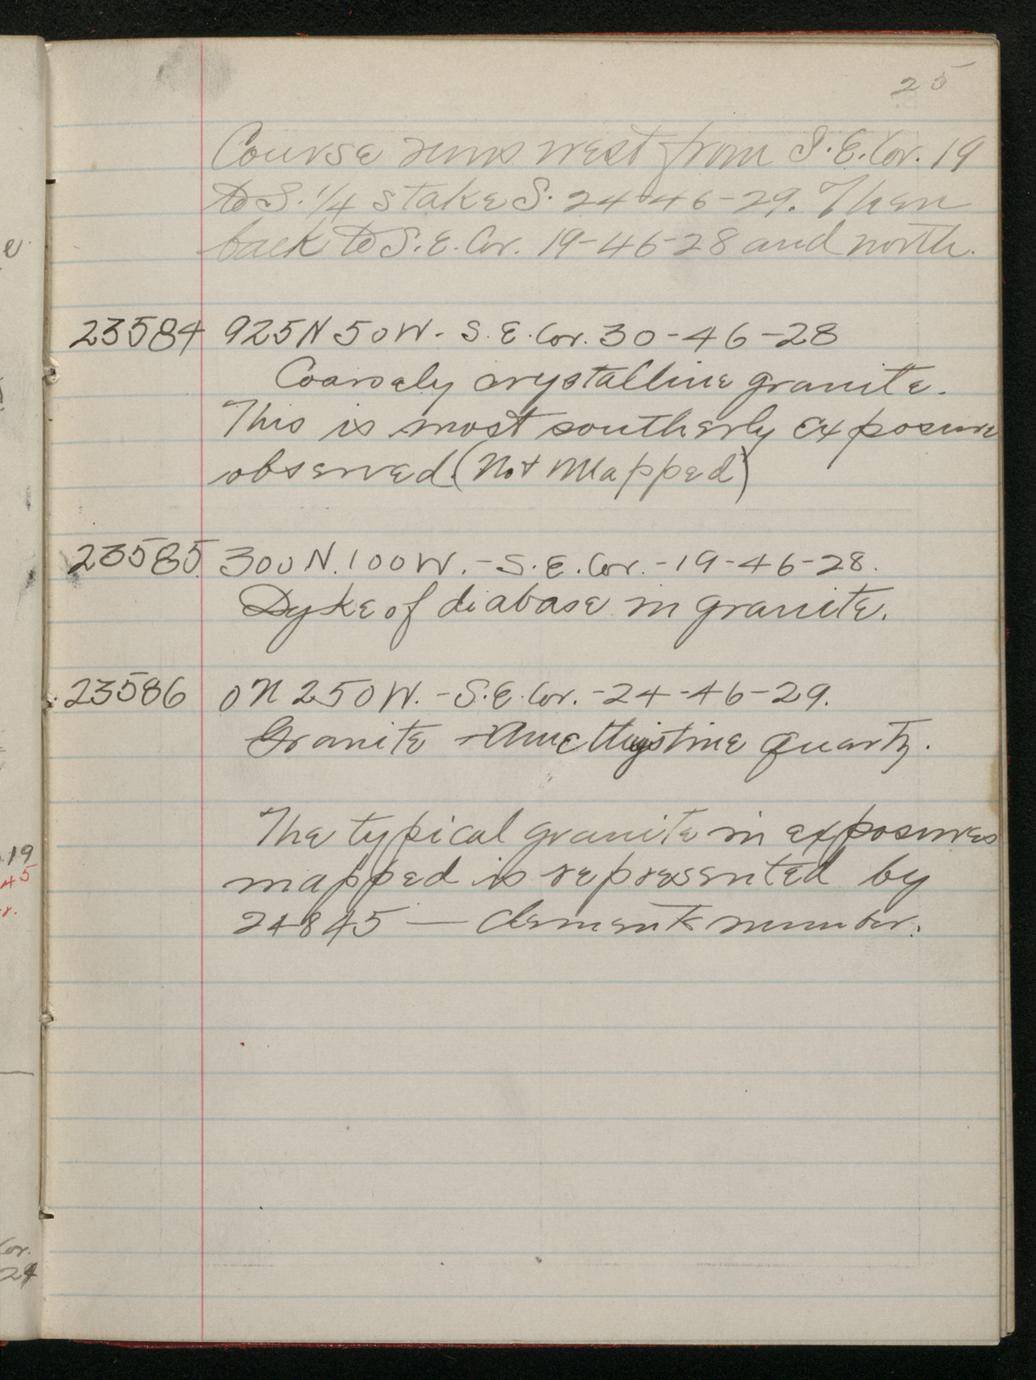 25
Course runs west from S.E. Cor. 19
to S. 1/4 stake S. 24-46-29. Then
back to S.E. Cor. 19-46-28 and north.
23584 925N 50W- S.E. Cor. 30-46-28
Coarsely crystalline granite.
This is most southerly exposure
observed. (Not Mapped)
23585 300N. 100W. - S.E. Cor. - 19-46-28.
Dyke of diabase in granite.
23586 0N 250W. - S.E. Cor. - 24-46-29.
Granite - Amethystine quartz.
The typical granite in exposures
mapped is represented by
24845 — Clements number.
.19
45
r.
Cor.
24